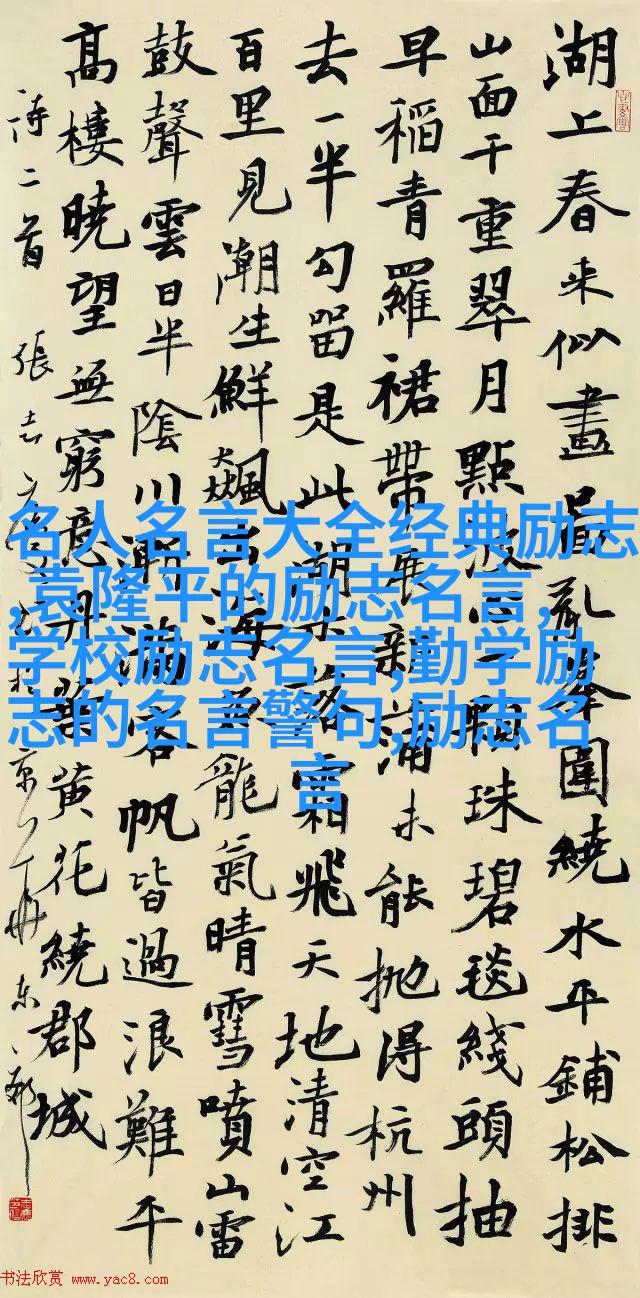 湖上春来似畫圖亂峯圍繞水平鋪松排
山面千重翠月點波心一顆珠碧毯綫頭抽
早稻青羅裙帶展新蒲未能抛得杭州
去一半勾留是此湖木落霜飛天地清空江
百里見潮生鮮飆出海魚龍氣晴雪噴山雷
鼓聲雲日半陰川漸滿客帆皆過浪難平
高樓曉望無窮意丹葉黄花繞郡城
詩二首 張志
名人名言大全经典励志
,袁隆平的励志名言,
学校励志名言,勤学励
志的名言警句,励志名
言
书法欣赏 www.yac8.com